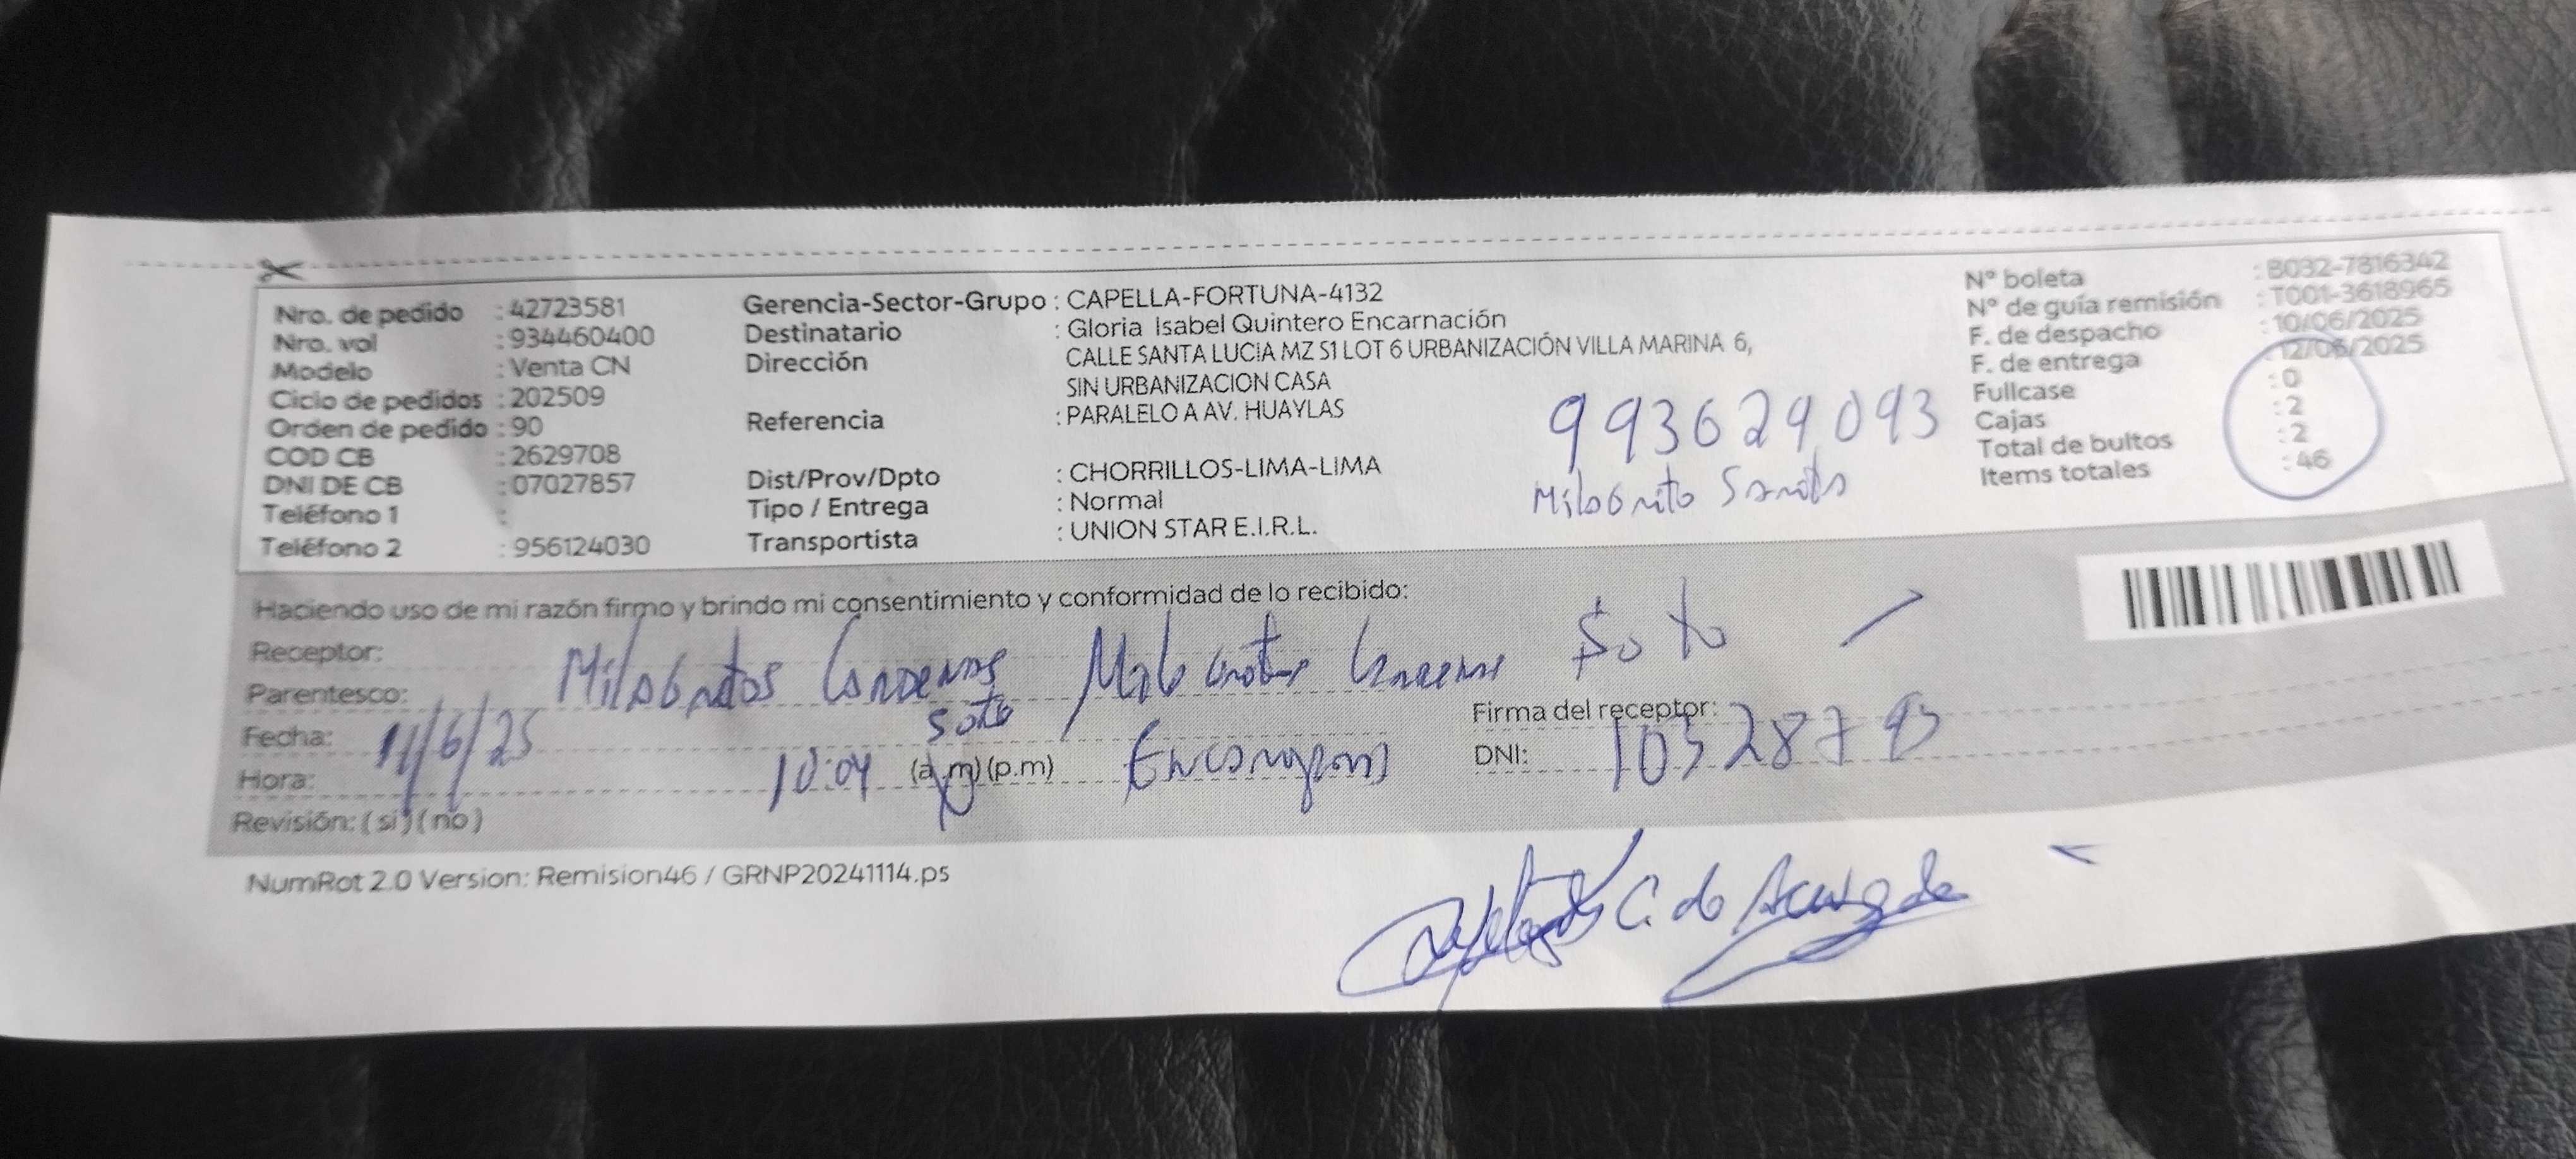 Nro. de pedido : 42723581
Nro. vol : 934460400
Modelo : Venta CN
Ciclo de pedidos : 202509
Orden de pedido : 90
COD CB : 2629708
DNI DE CB : 07027857
Teléfono 1 :
Teléfono 2 : 956124030
Gerencia-Sector-Grupo : CAPELLA-FORTUNA-4132
Destinatario : Gloria Isabel Quintero Encarnación
Dirección CALLE SANTA LUCIA MZ S1 LOT 6 URBANIZACIÓN VILLA MARINA 6,
SIN URBANIZACION CASA
Referencia : PARALELO A AV. HUAYLAS
Dist/Prov/Dpto : CHORRILLOS-LIMA-LIMA
Tipo / Entrega : Normal
Transportista : UNION STAR E.I.R.L.
993629093
N° boleta : B032-7816342
N° de guía remisión : T001-3618965
F. de despacho : 10/06/2025
F. de entrega : 12/06/2025
Fullcase : 0
Cajas : 2
Total de bultos : 2
Items totales : 46
Haciendo uso de mi razón firmo y brindo mi consentimiento y conformidad de lo recibido:
Receptor: Soto
Parentesco: Milagritos Cardenas
Soto
Firma del receptor:
Fecha: 11/6/25
Hora: 10:04 (a.m) (p.m)
DNI:
Revisión: ( si ) ( no )
NumRot 2.0 Version: Remision46 / GRNP20241114.ps